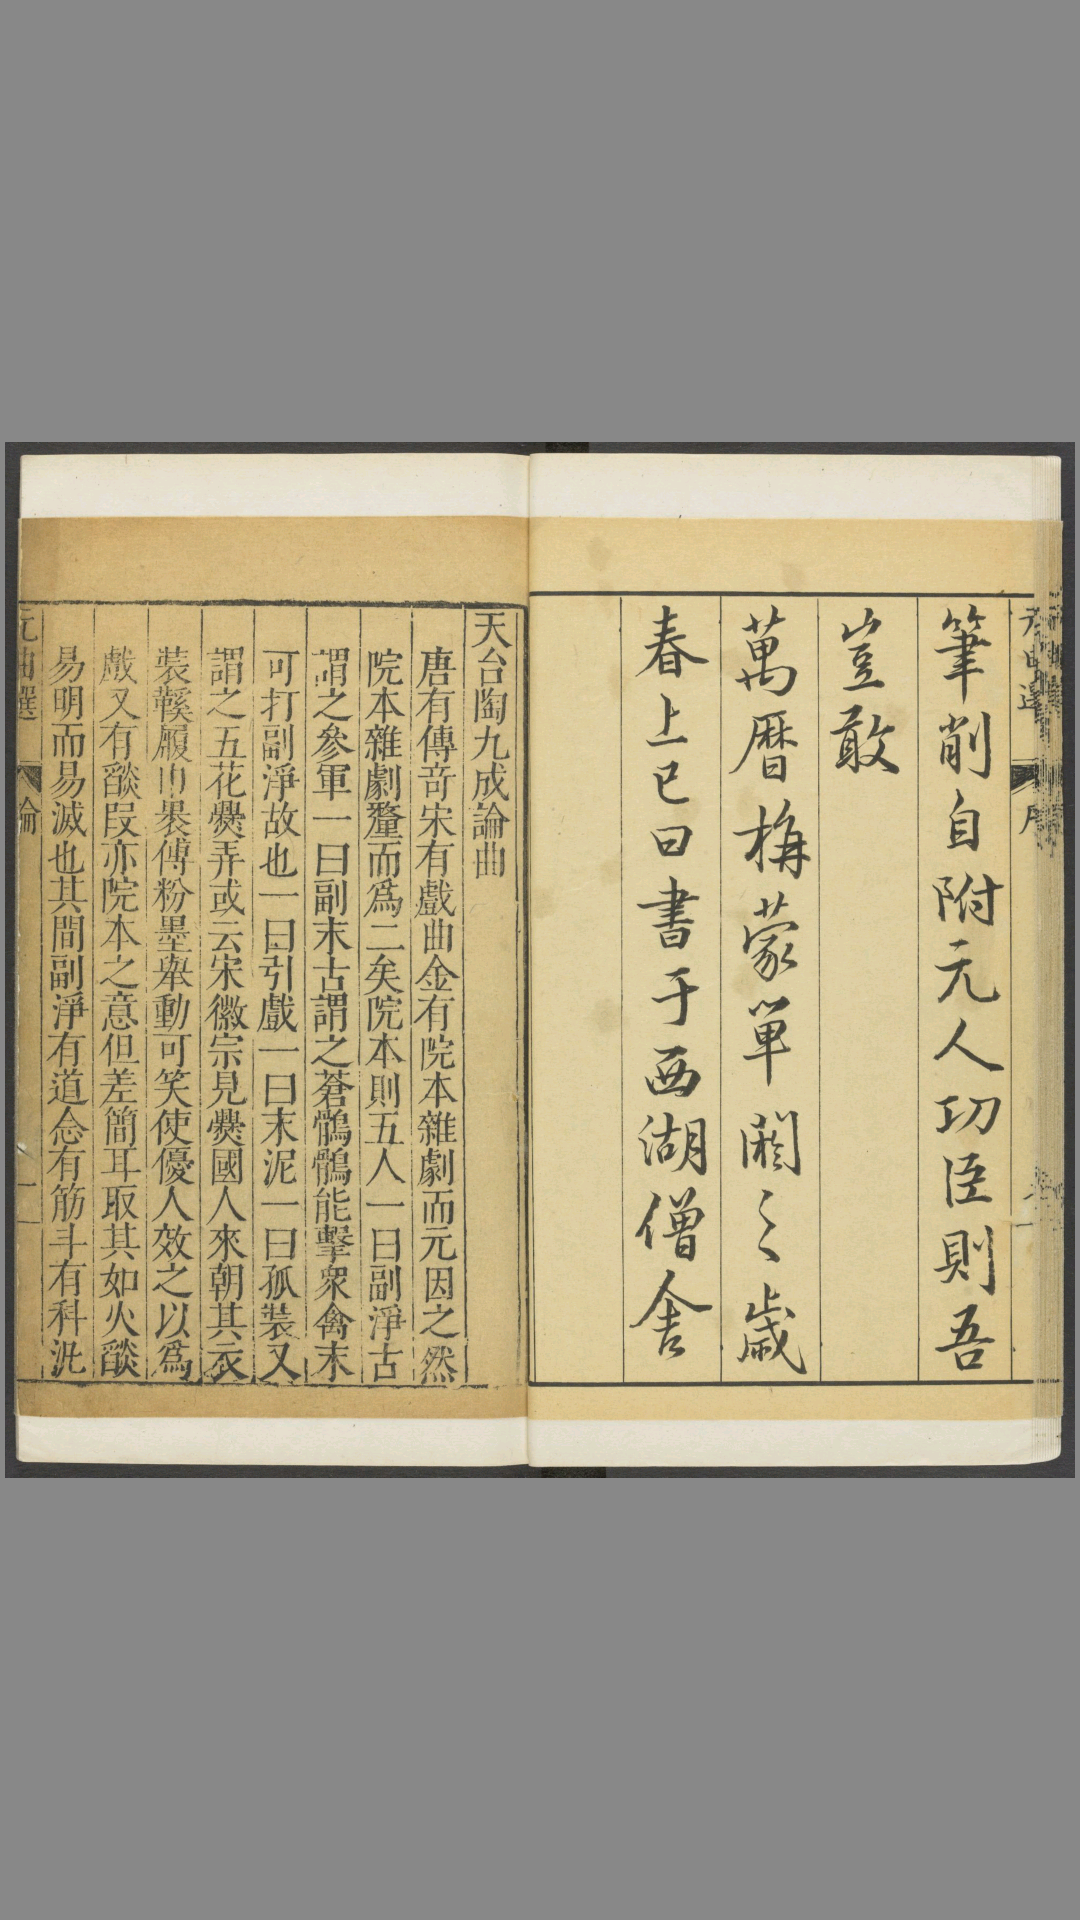 筆削自附元人功臣則吾
豈敢
萬曆旃蒙單閼之歲
春上巳日書于西湖僧舍
天台陶九成論曲
唐有傳奇宋有戲曲金有院本雜劇而元因之然
院本雜劇釐而爲二矣院本則五人一曰副淨古
謂之參軍一曰副末古謂之蒼鶻鶻能擊衆禽末
可打副淨故也一曰引戲一曰末泥一曰孤裝又
謂之五花爨弄或云宋徽宗見爨國人來朝其衣
裝鞵履巾裹傅粉墨舉動可笑使優人效之以爲
戲又有燄段亦院本之意但差簡耳取其如火燄
易明而易滅也其間副淨有道念有筋斗有科汎
元曲選
論
一